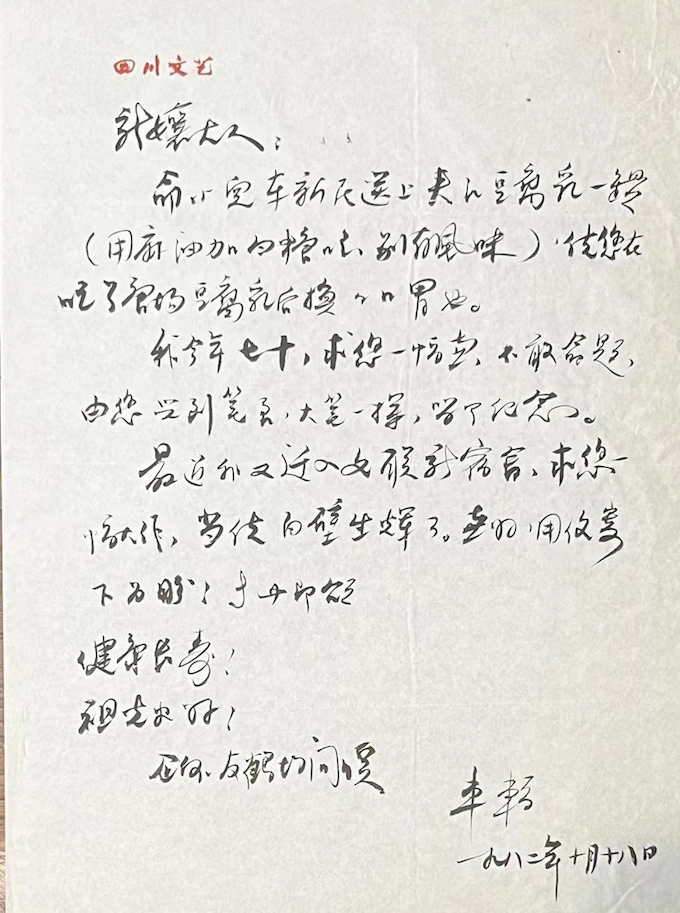 四川文艺
新娘大人：
命小儿车新民送上夹江豆腐乳一罐
（用麻油加白糖吃，别有风味），使您在
吃了唐场豆腐乳后换个口胃也。
我今年七十，求您一幅画，不敢命题，
由您兴到笔至，大笔一挥，留个纪念。
最近我又迁入文联新宿舍，求您一
幅大作，当使白壁生辉了。画好，用仪寄
下为盼！专此即颂
健康长寿！
祖光兄好！
问候
车辐
一九八二年十月十八日